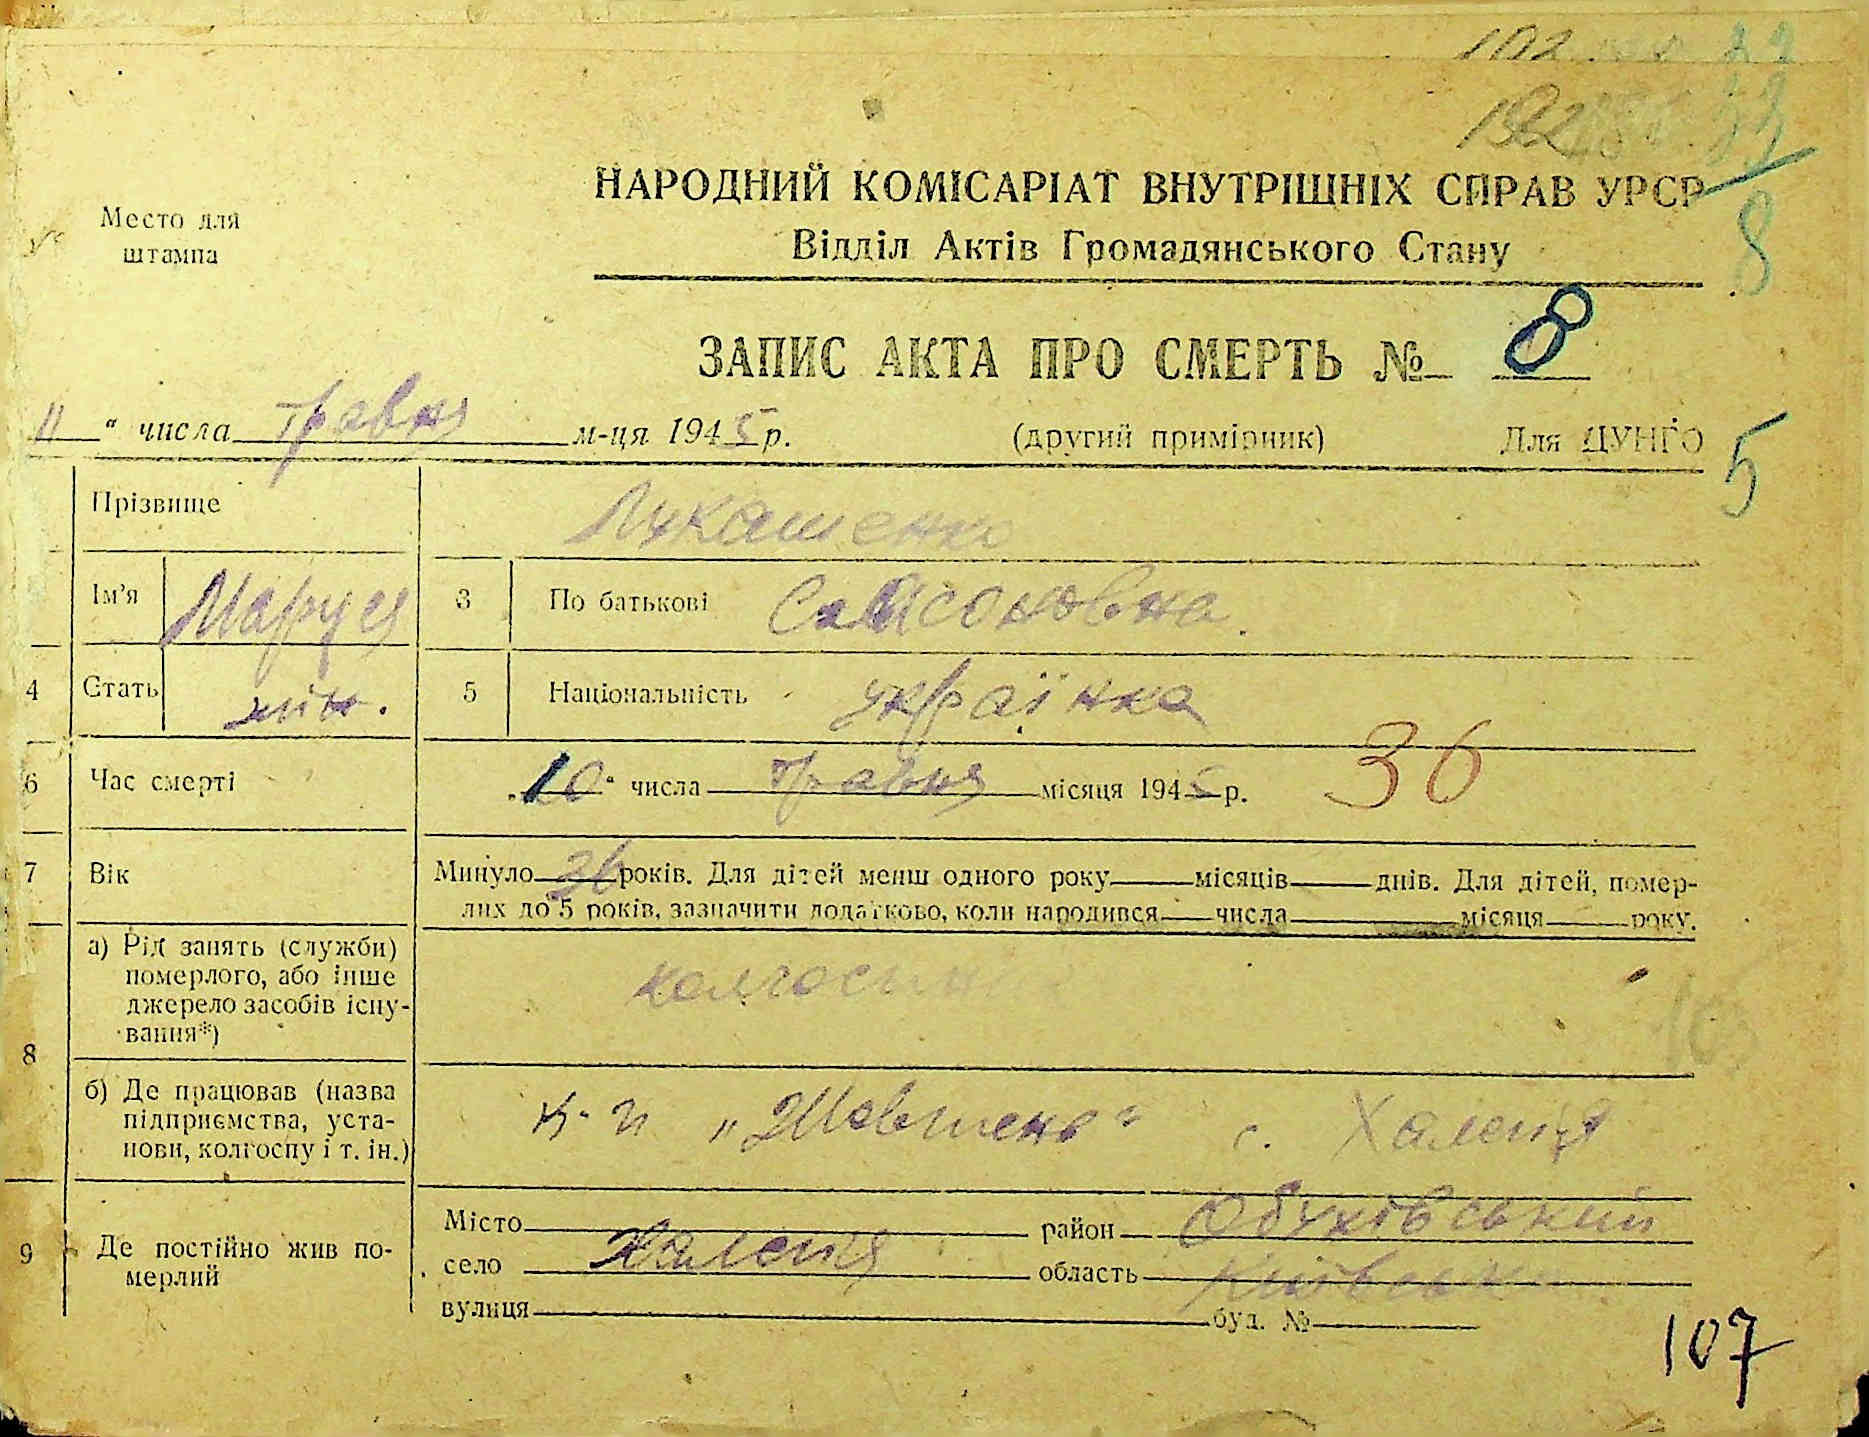 Место для
штампа
НАРОДНИЙ КОМІСАРІАТ ВНУТРІШНІХ СПРАВ УРСР
Відділ Актів Громадянського Стану
8
ЗАПИС АКТА ПРО СМЕРТЬ № 8
11 " числа травня м-ця 1945 р. (другий примірник) Для ЦУНГО
5
Прізвище Лукашенко
Ім'я Маруся 3 По батькові Самсоновна.
4 Стать жін. 5 Національність українка
6 Час смерті „10" числа травня місяця 1945 р. 36
7 Вік Минуло 36 років. Для дітей менш одного року місяців днів. Для дітей, помер-
лих до 5 років, зазначити додатково, коли народився числа місяця року.
8 а) Рід занять (служби)
померлого, або інше
джерело засобів існу-
вання*)
б) Де працював (назва
підприємства, уста-
нови, колгоспу і т. ін.)
с. Халепя
9 Де постійно жив по-
мерлий
Місто район Обухівський
село Халепя область Київськ
вулиця буд. №
107